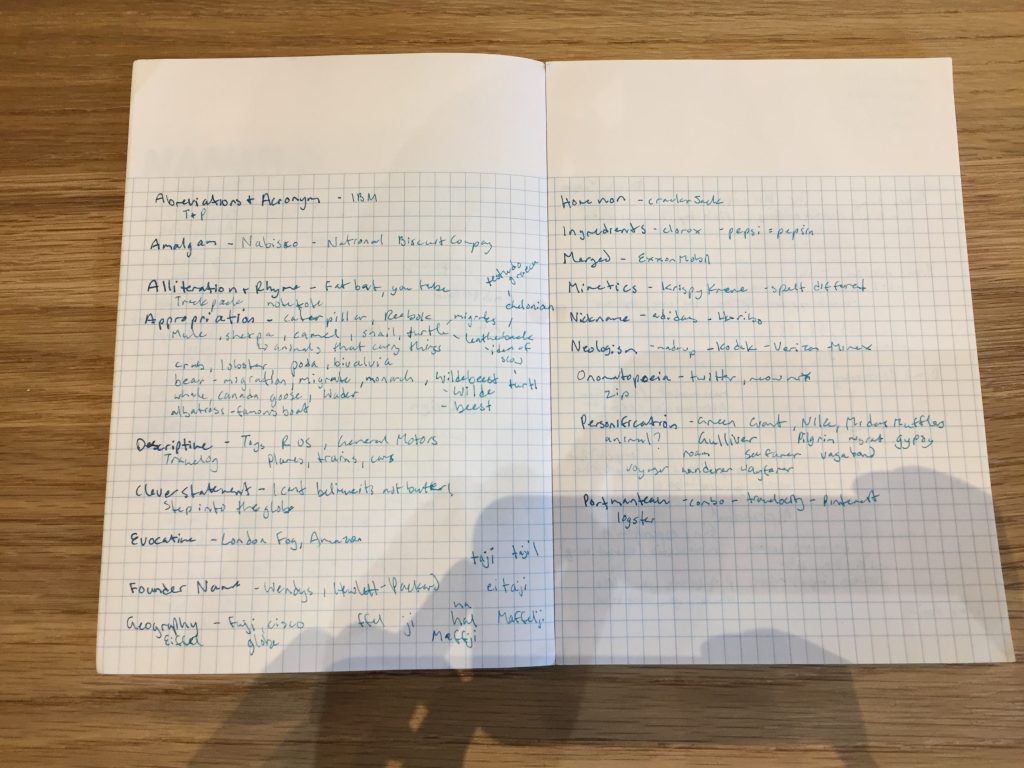 Abreviations + Acronym - IBM
T+P
Amalgam - Nabisco - National Biscuit Compay
testudo graeca
Alliteration + Rhyme - Fat bat, you tube
Track pack
chelonian
Appropriation - Caterpillar, Reebok, migrates,
Mule, sherpa, camel, snail, turtle - leatherback
↳ animals that carry things - iden of slow
crab, lobster, poda, bivalvia
bear - migration, migrate, monarch, wildebeest turtl
whale, canada goose, wader - wilde
albatross - famous boat - beest
Descriptive - Toys R US, General Motors
Travelog planes, trains, cars
Clever statement - I cant believe its not butter!
Step into the globe
Evocative - London Fog, Amazon
taji tajil
Founder Name - Wendys, Hewlett-Packard eitaji
na
Geography - Fuji, cisco ffel ji hal Maffelji
Eiffel globe Maffji
Homenon - cracker Jack
Ingredients - clorox - pepsi = pepsin
Merged - Exxon Mobil
Mimetics - Krispy Kreme - spelt different
Nickname - adidas - Haribo
Neologism - madeup - Kodak - Verizon
Onomatopoeia - twitter, meow mix
Zip
Personification - Green Giant, Nike, Midas Muffles
animal? Gulliver Pilgrim gypsy
roam seafarer vagabond
voyager wanderer wayfarer
Portmanteau - combo - travelocity - Pinterest
logster